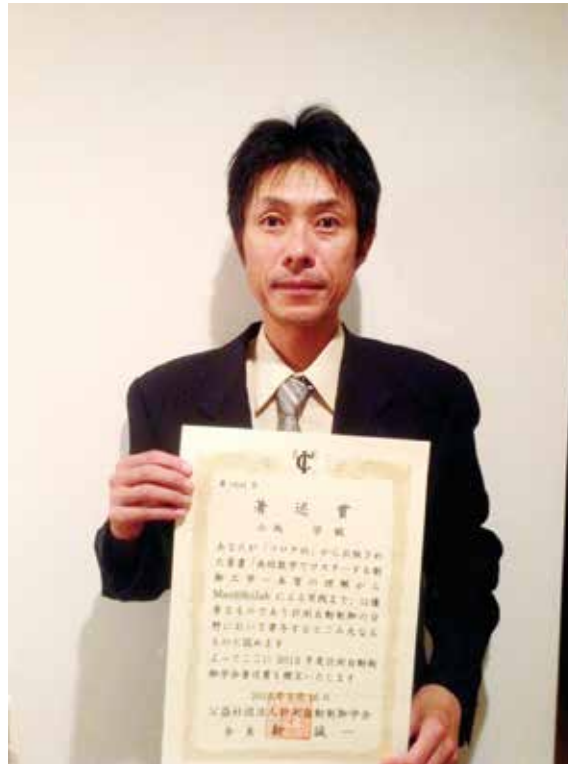 著 述 賞
学 殿
あなたが「コロナ社」から出版され
た著書「高校数学でマスターする制
御工学－本質の理解から
Mat@Scilab による実践まで」は優
秀なものであり計測自動制御の分
野において寄与するところ大なる
ものと認めます
よってここに 2013 年度計測自動制
御学会著述賞を贈呈いたします
公益社団法人計測自動制御学会
会 長 誠 一